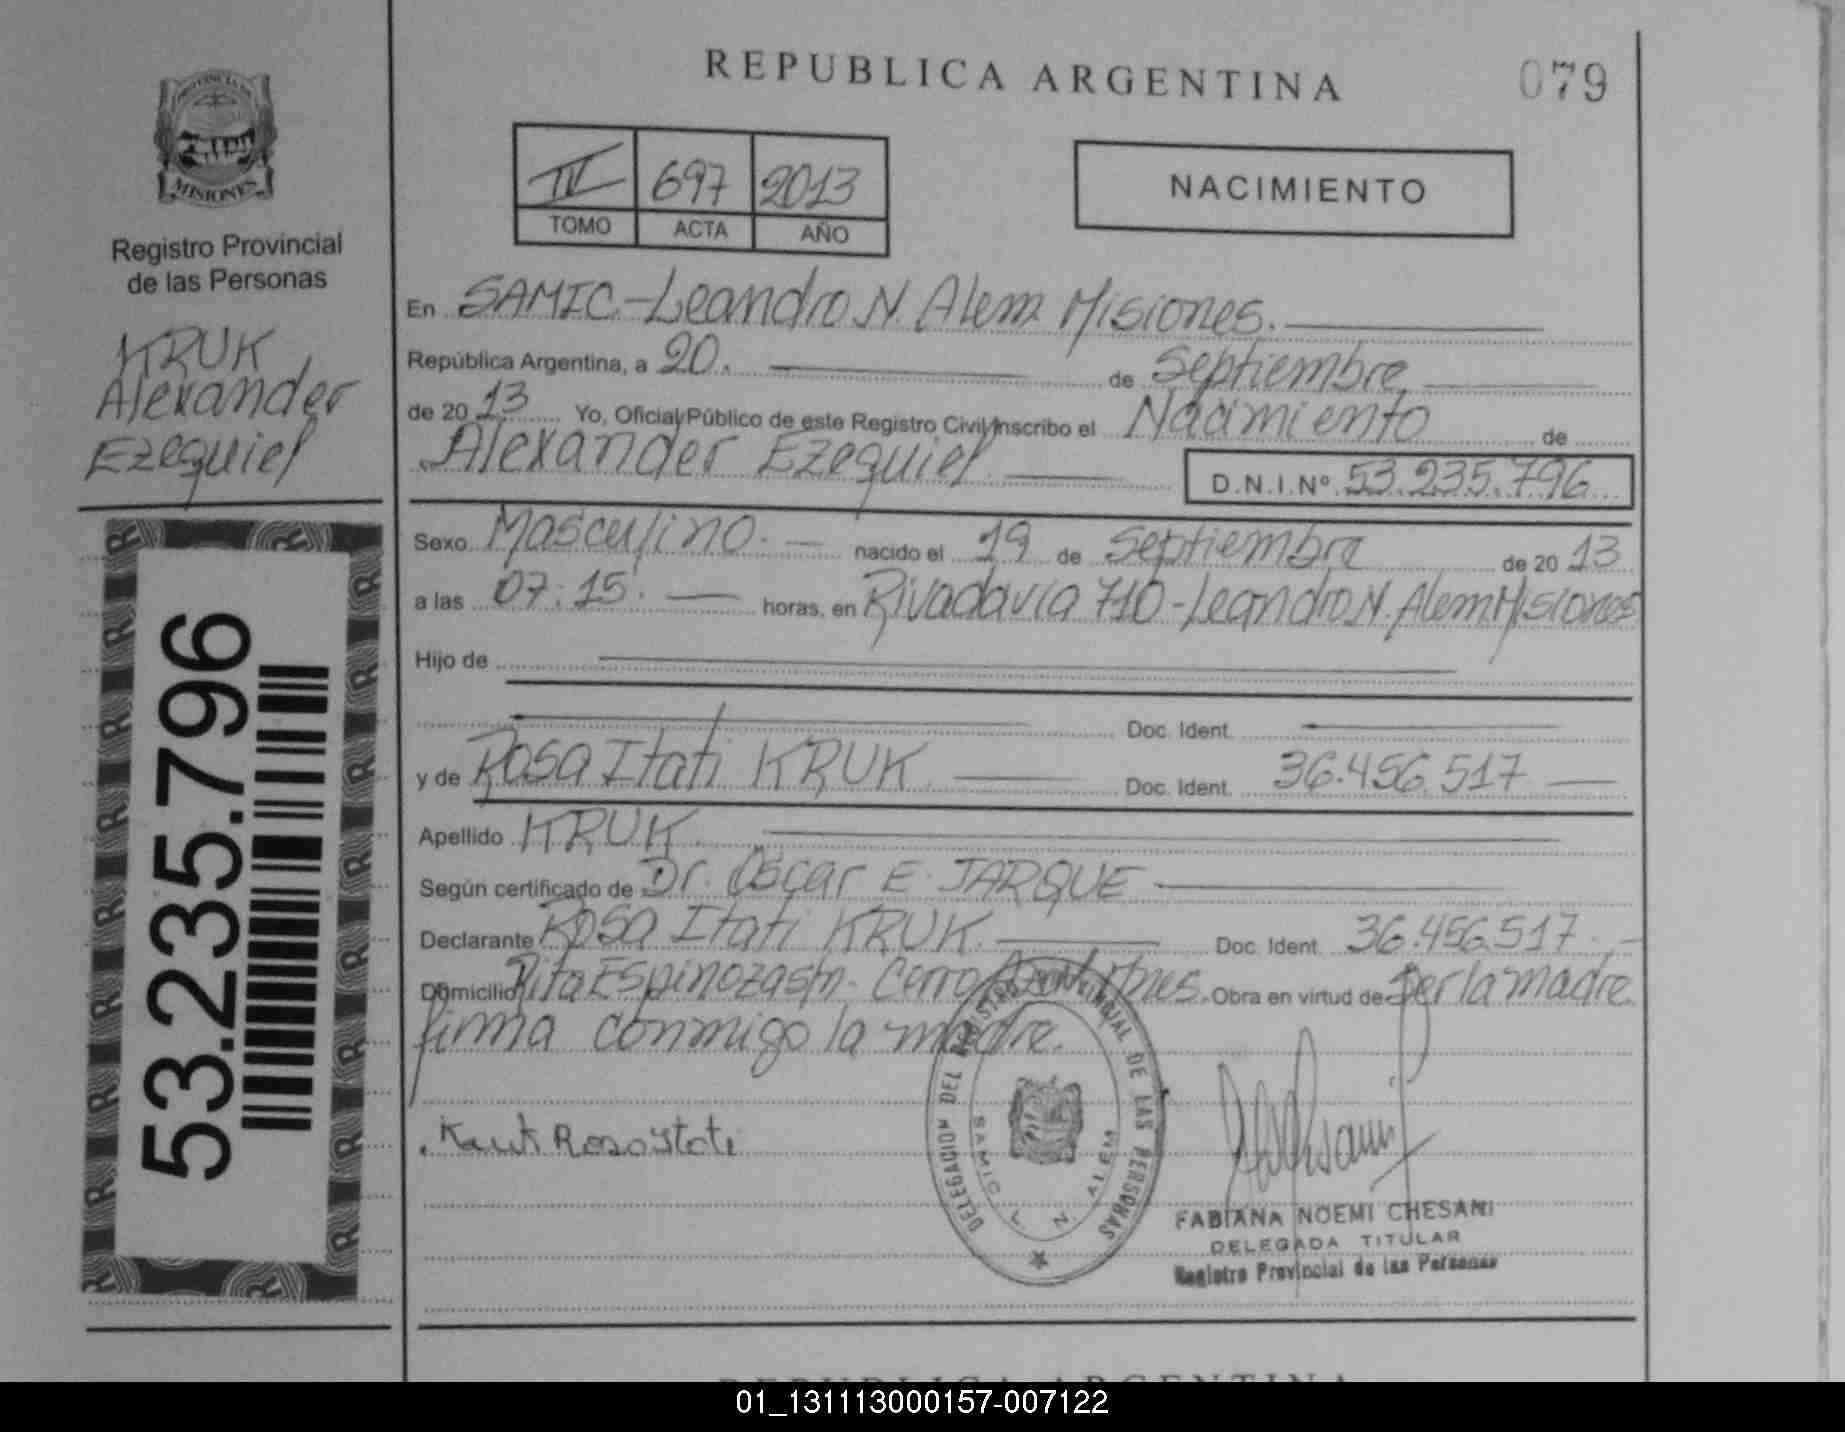 REPUBLICA ARGENTINA
079
PROVINCIA DE
MISIONES
Registro Provincial
de las Personas
KRUK
Alexander
Ezequiel
53.235.796
IV 697 2013
TOMO ACTA AÑO
NACIMIENTO
En SAMIC-Leandro N. Alem Misiones.
República Argentina, a 20. de Septiembre
de 2013 Yo, Oficial Público de este Registro Civil Inscribo el Nacimiento de
Alexander Ezequiel
D.N.I.Nº 53.235.796
Sexo Masculino. nacido el 19 de Septiembre de 2013
a las 07:15. horas, en Rivadavia 710-Leandro N. Alem Misiones
Hijo de
Doc. Ident.
y de Rosa Itati KRUK Doc. Ident. 36.456.517
Apellido KRUK
Según certificado de Dr. Oscar E. JARQUE
Declarante Rosa Itati KRUK. Doc. Ident. 36.456.517.
Domicilio Rita Espinoza s/n. Cerro Azul Mnes. Obra en virtud de Ser la madre.
firma conmigo la madre.
Kruk Rosa Itati
DELEGACION DEL REGISTRO PROVINCIAL DE LAS PERSONAS
SAMIC L. N. ALEM
FABIANA NOEMI CHESANI
DELEGADA TITULAR
Registro Provincial de las Personas
REPUBLICA ARGENTINA
01_131113000157-007122